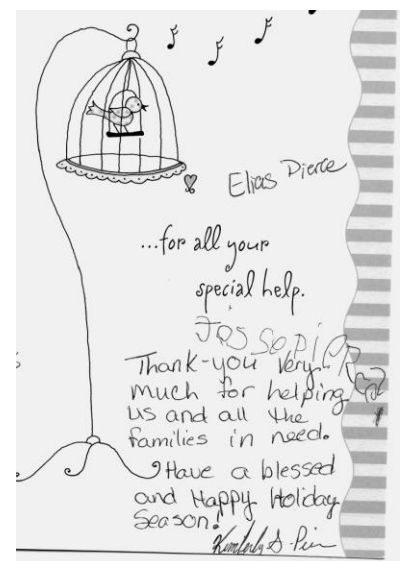 Elias Pierce
...for all your
special help.
Thank-you very
much for helping
us and all the
families in need.
Have a blessed
and Happy Holiday
Season!
Kimberly S.